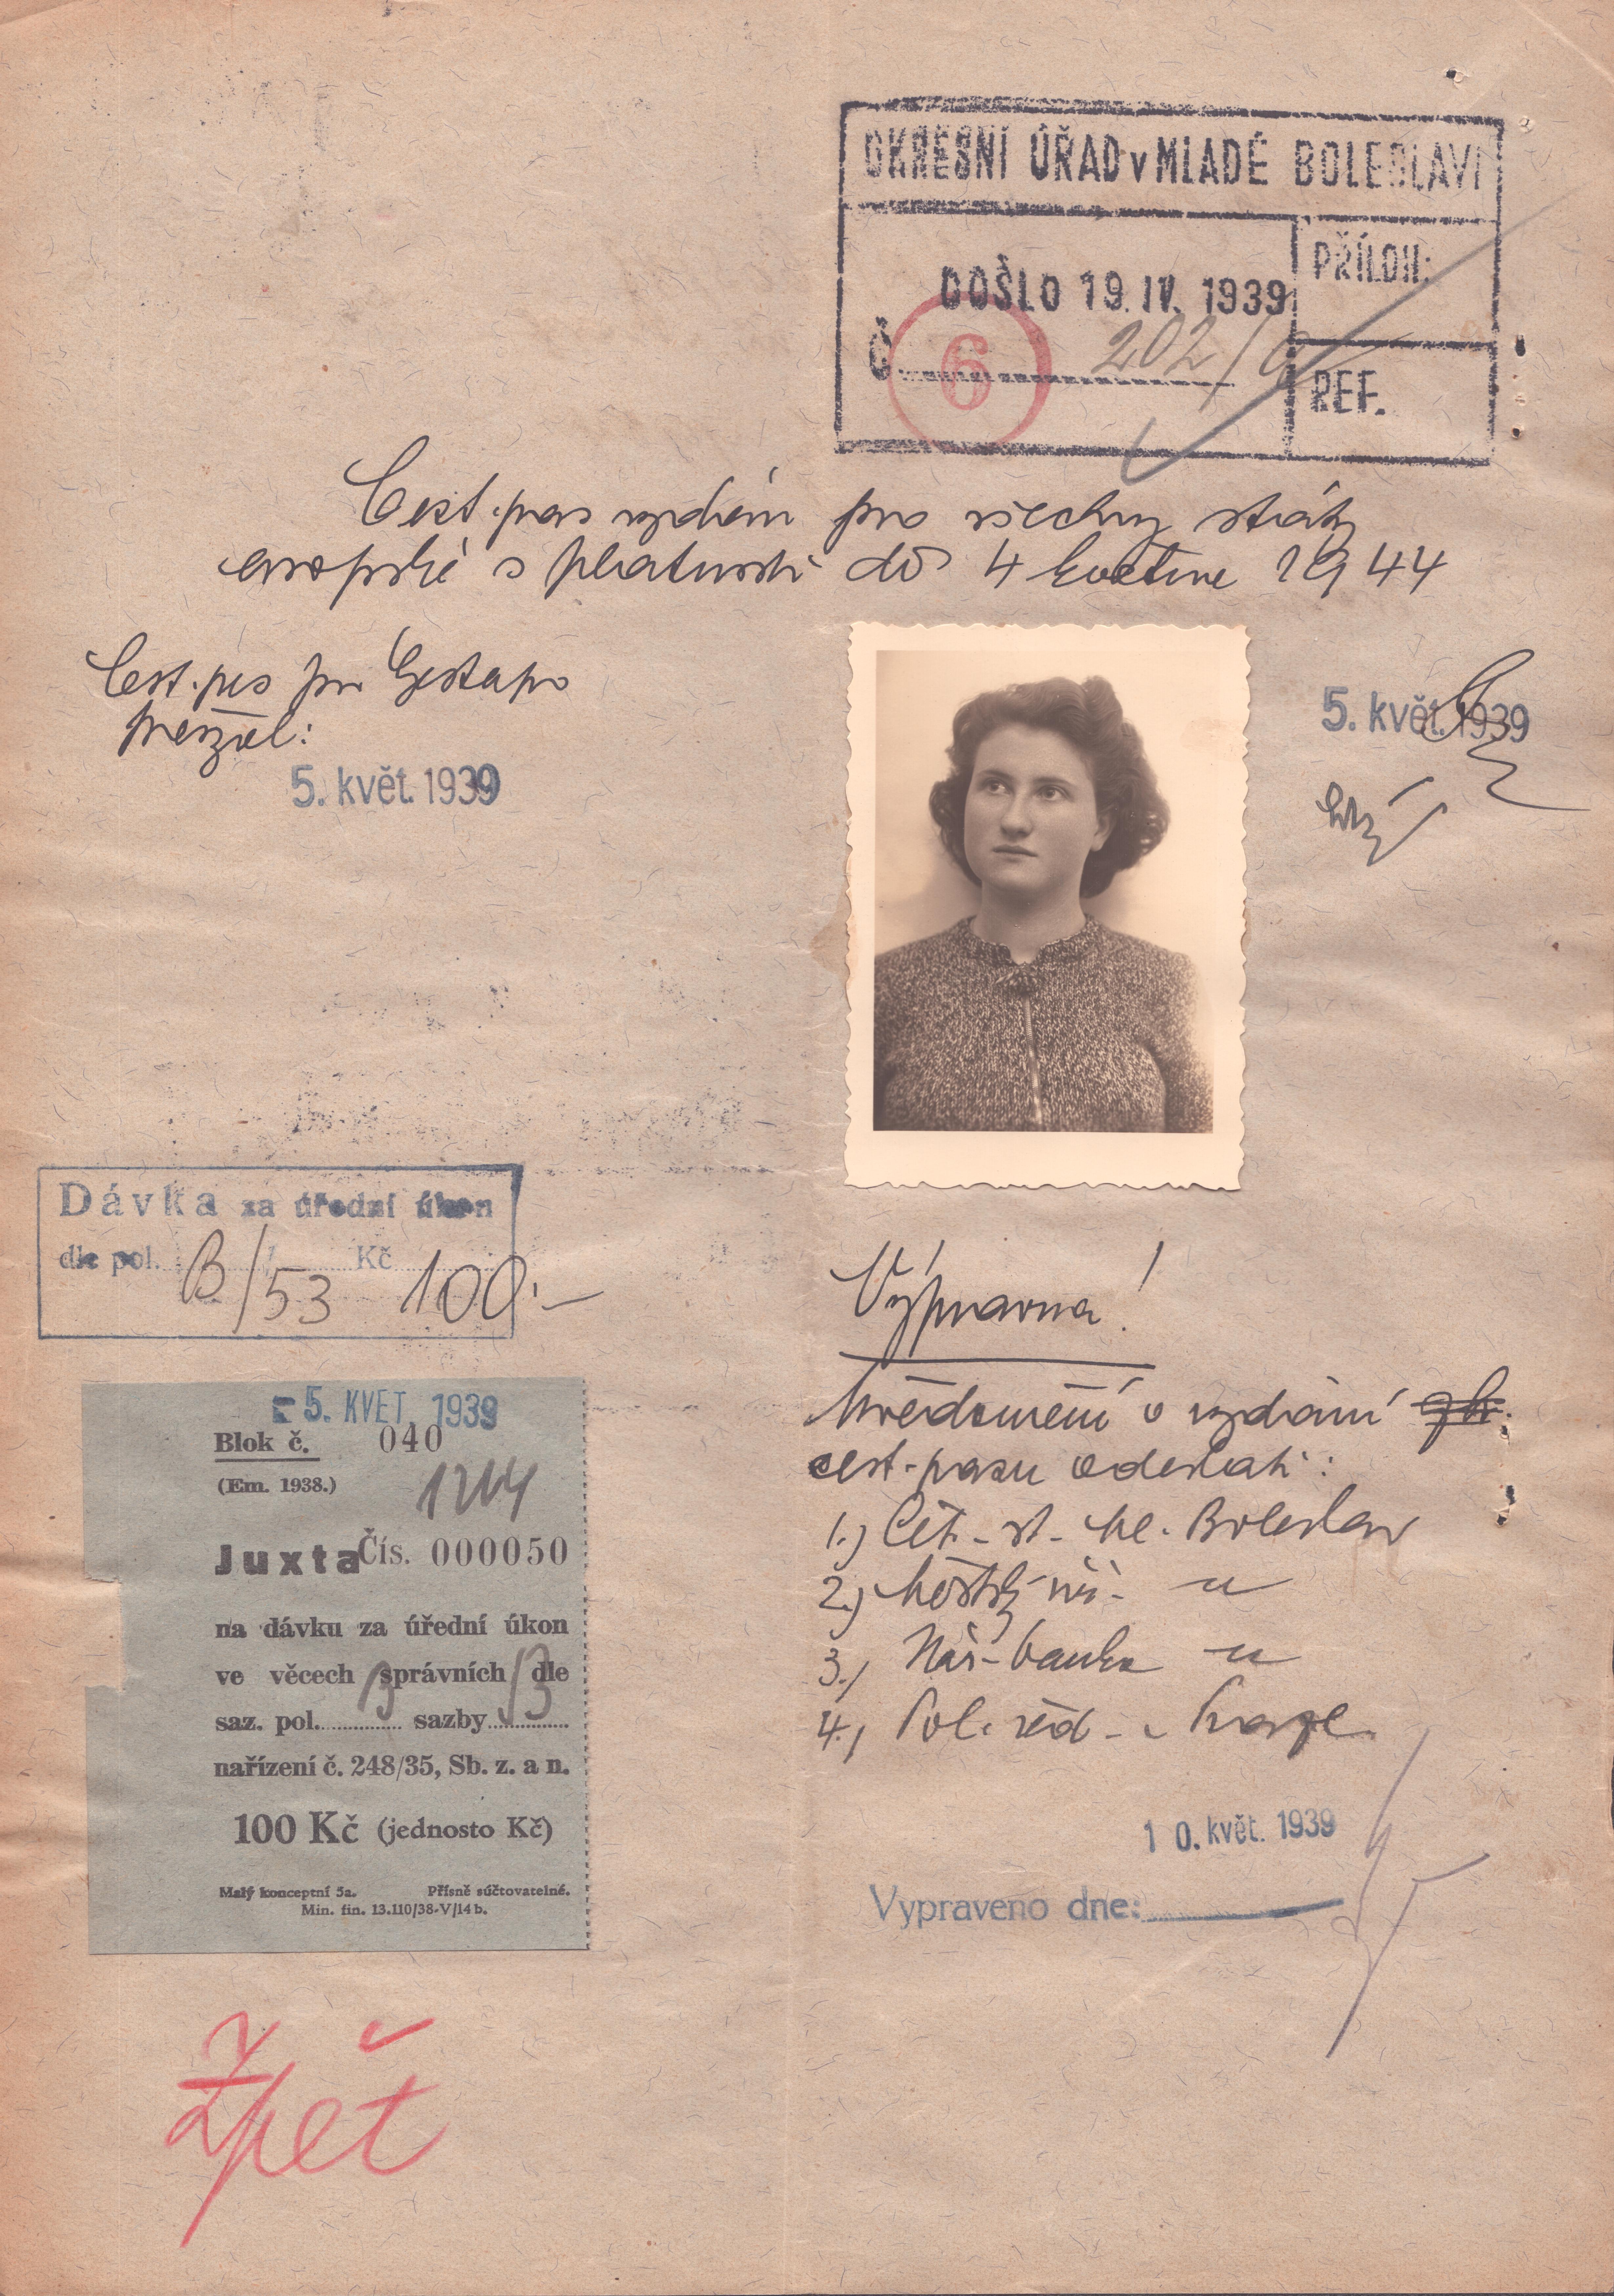 OKRESNÍ ÚŘAD v MLADÉ BOLESLAVI
DOŠLO 19. IV. 1939
PŘÍLOH:
Č 6 202/
REF.
Cest. pas vydán pro všechny státy
evropské s platností do 4 května 1944
Cest. pas pro Gestapo
převzal:
5. květ. 1939
5. květ. 1939
Dávka za úřední úkon
dle pol. B/53 Kč 100.—
5. KVĚT. 1939
Blok č. 040
(Em. 1938.)
1214
Juxta Čís. 000050
na dávku za úřední úkon
ve věcech správních dle
saz. pol. B sazby
nařízení č. 248/35, Sb. z. a n.
100 Kč (jednosto Kč)
Malý konceptní 5a. Přísně súčtovatelné.
Min. fin. 13.110/38-V/14 b.
Výpravna!
Uvědomění o vydání
cest. pasu odeslati:
1.) Čet. st. Ml. Boleslav
2.) Městský
3.) Nár. banka
4.) Pol. řed. v Praze
10. květ. 1939
Vypraveno dne:
Zpět